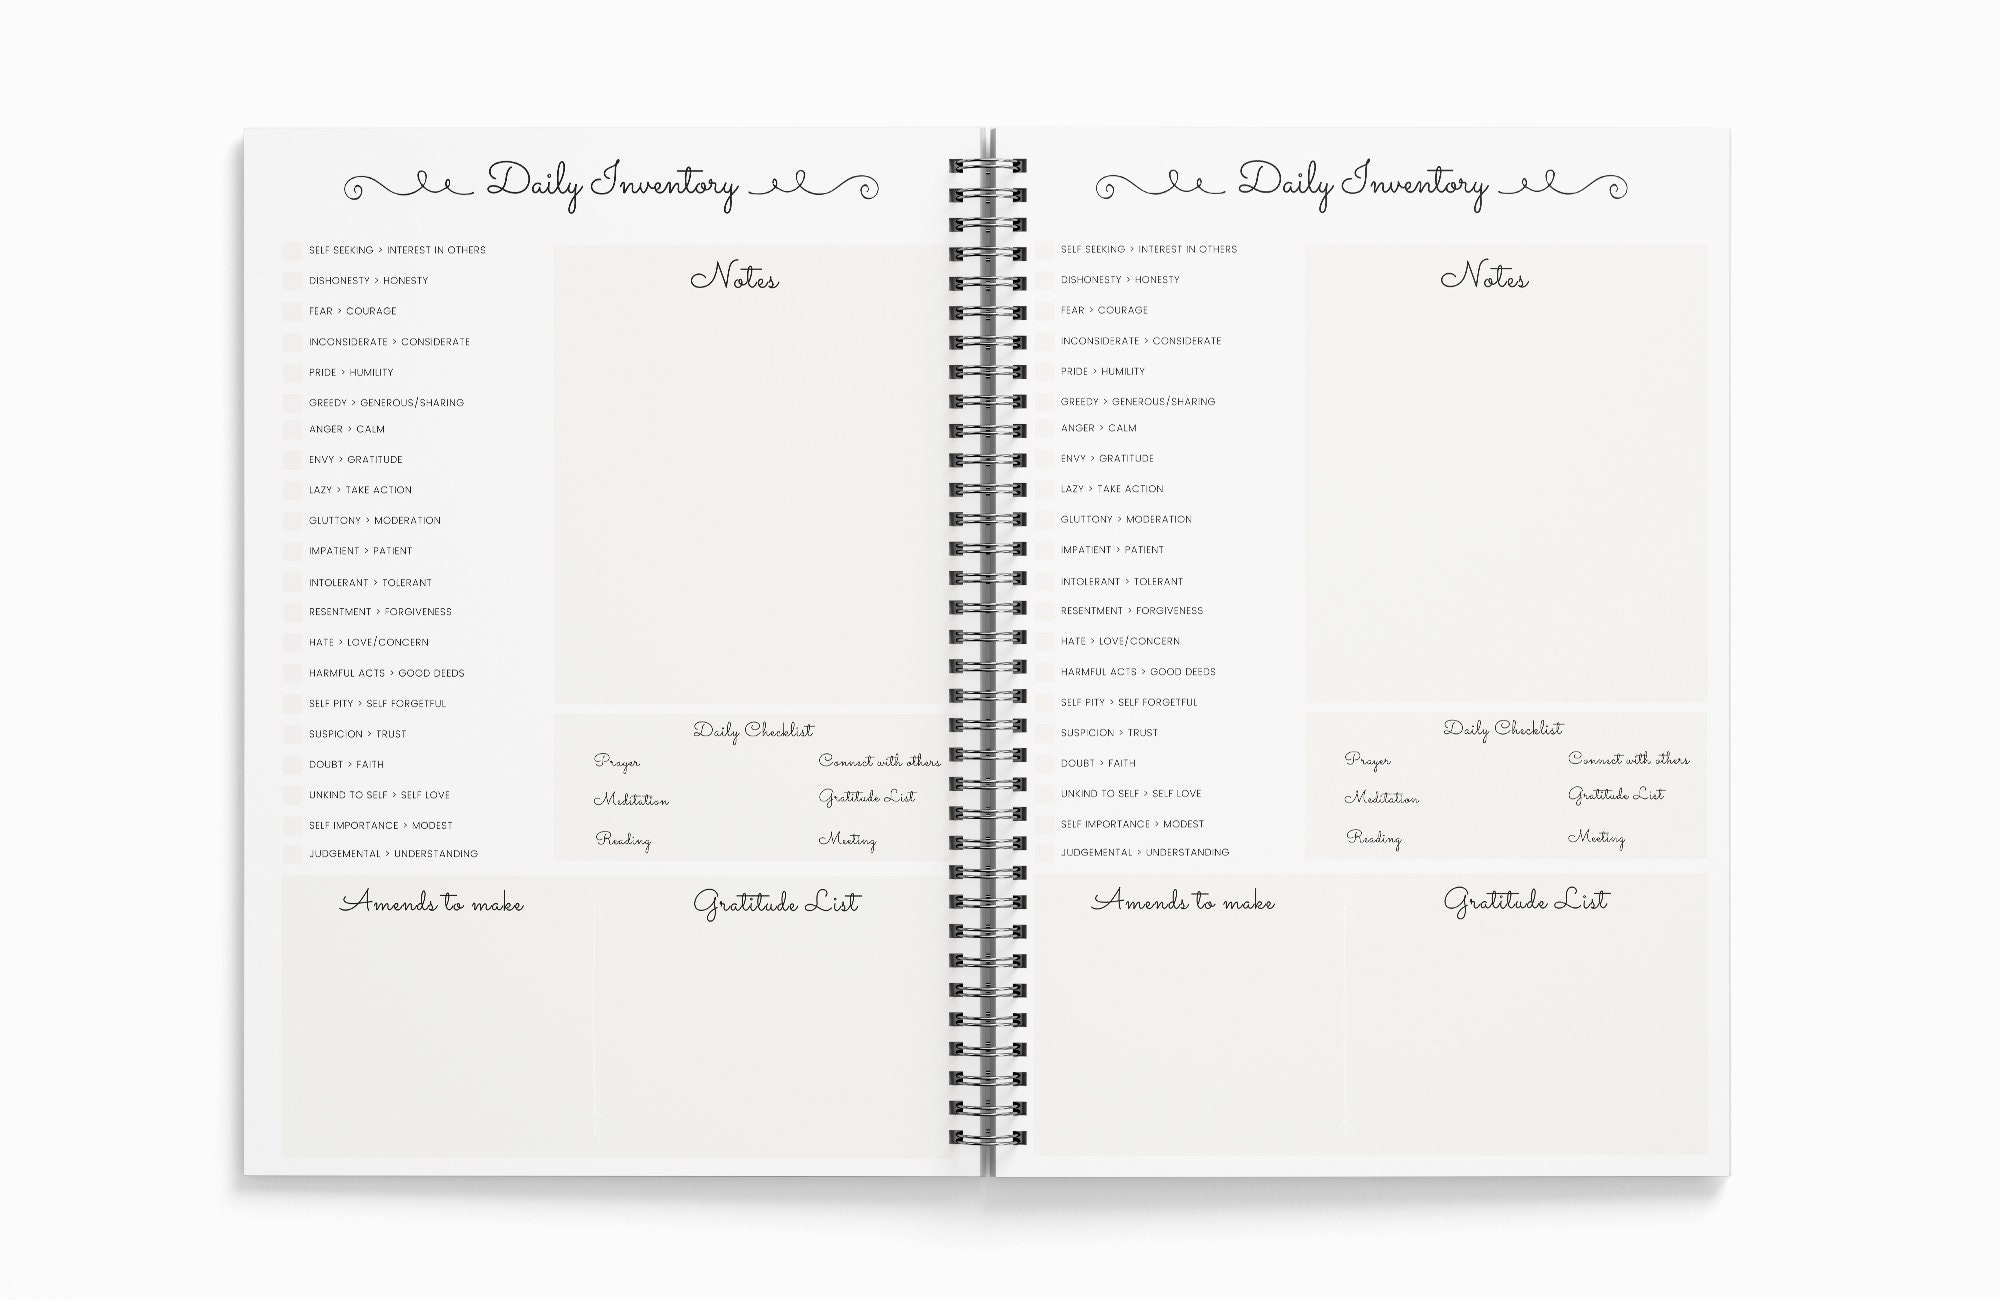 Daily Inventory
SELF SEEKING > INTEREST IN OTHERS
DISHONESTY > HONESTY
FEAR > COURAGE
INCONSIDERATE > CONSIDERATE
PRIDE > HUMILITY
GREEDY > GENEROUS/SHARING
ANGER > CALM
ENVY > GRATITUDE
LAZY > TAKE ACTION
GLUTTONY > MODERATION
IMPATIENT > PATIENT
INTOLERANT > TOLERANT
RESENTMENT > FORGIVENESS
HATE > LOVE/CONCERN
HARMFUL ACTS > GOOD DEEDS
SELF PITY > SELF FORGETFUL
SUSPICION > TRUST
DOUBT > FAITH
UNKIND TO SELF > SELF LOVE
SELF IMPORTANCE > MODEST
JUDGEMENTAL > UNDERSTANDING
Notes
Daily Checklist
Prayer
Connect with others
Meditation
Gratitude List
Reading
Meeting
Amends to make
Gratitude List
Daily Inventory
SELF SEEKING > INTEREST IN OTHERS
DISHONESTY > HONESTY
FEAR > COURAGE
INCONSIDERATE > CONSIDERATE
PRIDE > HUMILITY
GREEDY > GENEROUS/SHARING
ANGER > CALM
ENVY > GRATITUDE
LAZY > TAKE ACTION
GLUTTONY > MODERATION
IMPATIENT > PATIENT
INTOLERANT > TOLERANT
RESENTMENT > FORGIVENESS
HATE > LOVE/CONCERN
HARMFUL ACTS > GOOD DEEDS
SELF PITY > SELF FORGETFUL
SUSPICION > TRUST
DOUBT > FAITH
UNKIND TO SELF > SELF LOVE
SELF IMPORTANCE > MODEST
JUDGEMENTAL > UNDERSTANDING
Notes
Daily Checklist
Prayer
Connect with others
Meditation
Gratitude List
Reading
Meeting
Amends to make
Gratitude List